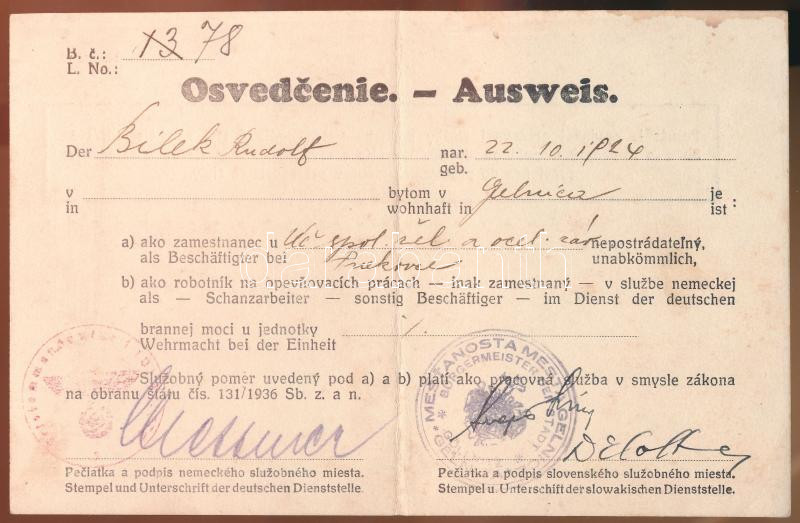 B. č.: 13 78
L. No.:
Osvedčenie. — Ausweis.
Der Bilek Rudolf nar. 22. 10. 1924
geb.
v bytom v Gelnica je
in wohnhaft in ist :
a) ako zamestnanec u Uč. spol. žel. a ocel. záv. nepostrádateľný,
als Beschäftigter bei unabkömmlich,
b) ako robotník na opevňovacích prácach — inak zamestnaný — v službe nemeckej
als — Schanzarbeiter — sonstig Beschäftigter — im Dienst der deutschen
brannej moci u jednotky
Wehrmacht bei der Einheit
Služobný pomer uvedený pod a) a b) platí ako pracovná služba v smysle zákona
na obranu štátu čís. 131/1936 Sb. z. a n.
MEŠŤANOSTA MESTA GELNI
BÜRGERMEISTER DER STADT
Pečiatka a podpis nemeckého služobného miesta.
Stempel und Unterschrift der deutschen Dienststelle.
Pečiatka a podpis slovenského služobného miesta.
Stempel u. Unterschift der slowakischen Dienststelle.